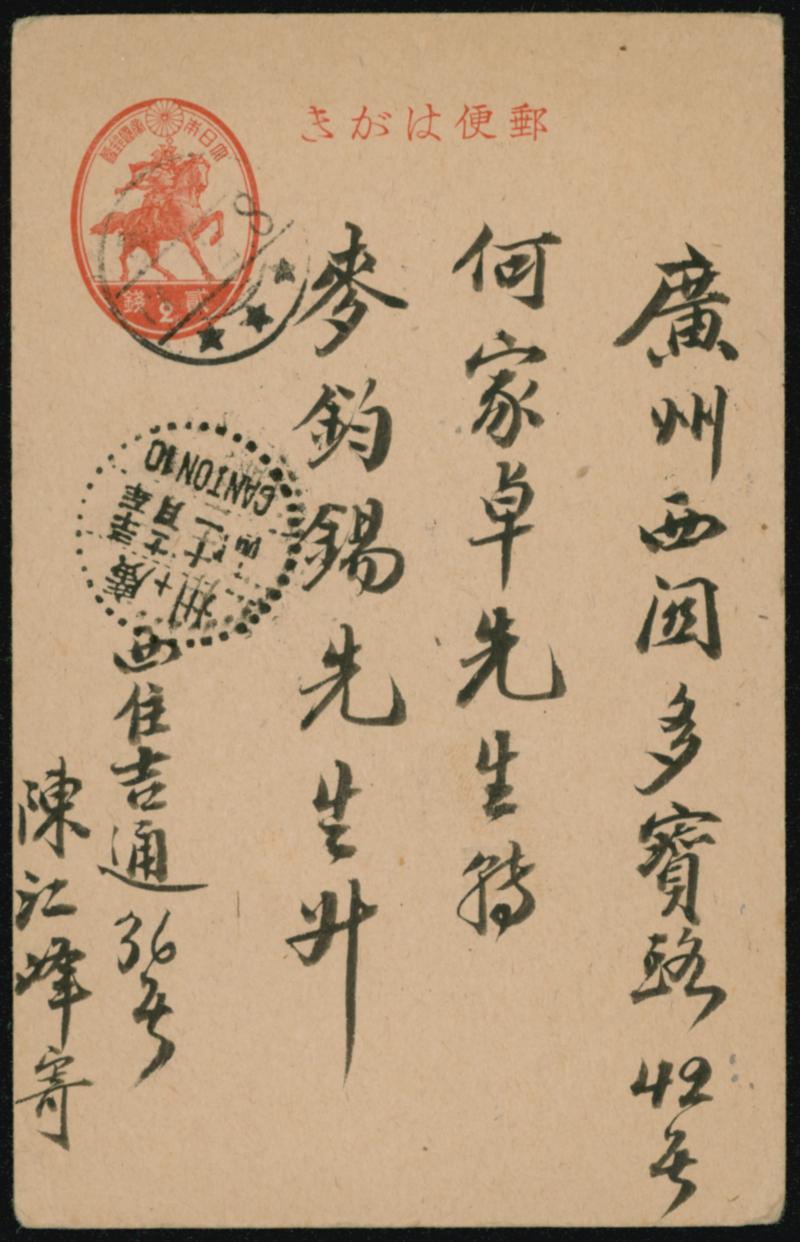 郵便はがき
大日本帝國郵便
貳錢
2
8
廣州西関多寶路42号
何家卓先生轉
麥鈞錫先生升
CANTON 10
廣州
西住吉通36号
陳江峰寄